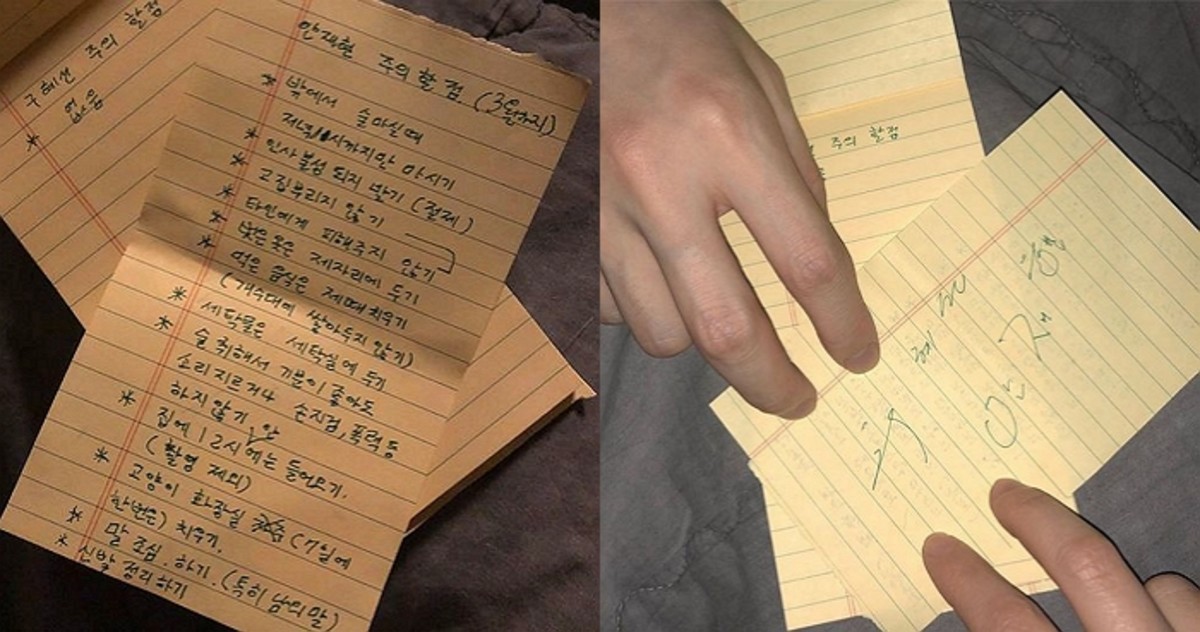 구혜선 주의 할점
* 없음
안재현 주의 할 점 (3월까지)
* 밖에서 술 마실 때
저녁 11시까지만 마시기
* 인사불성 되지 말기 (절제)
* 고집부리지 않기
* 타인에게 피해주지 않기
* 벗은 옷은 제자리에 두기
* 먹은 음식은 제때 치우기
(개수대에 쌓아두지 않기)
* 세탁물은 세탁실에 두기
* 술 취해서 기분이 좋아도
소리지르거나 손지검, 폭력 등
하지 않기
* 집에 12시 안에는 들어오기.
(촬영 제외)
* 고양이 화장실 (7일에
한번은) 치우기.
* 말 조심. 하기. (특히 남의 말)
* 신발 정리하기
주의 할점
구 혜 선
안 재 현